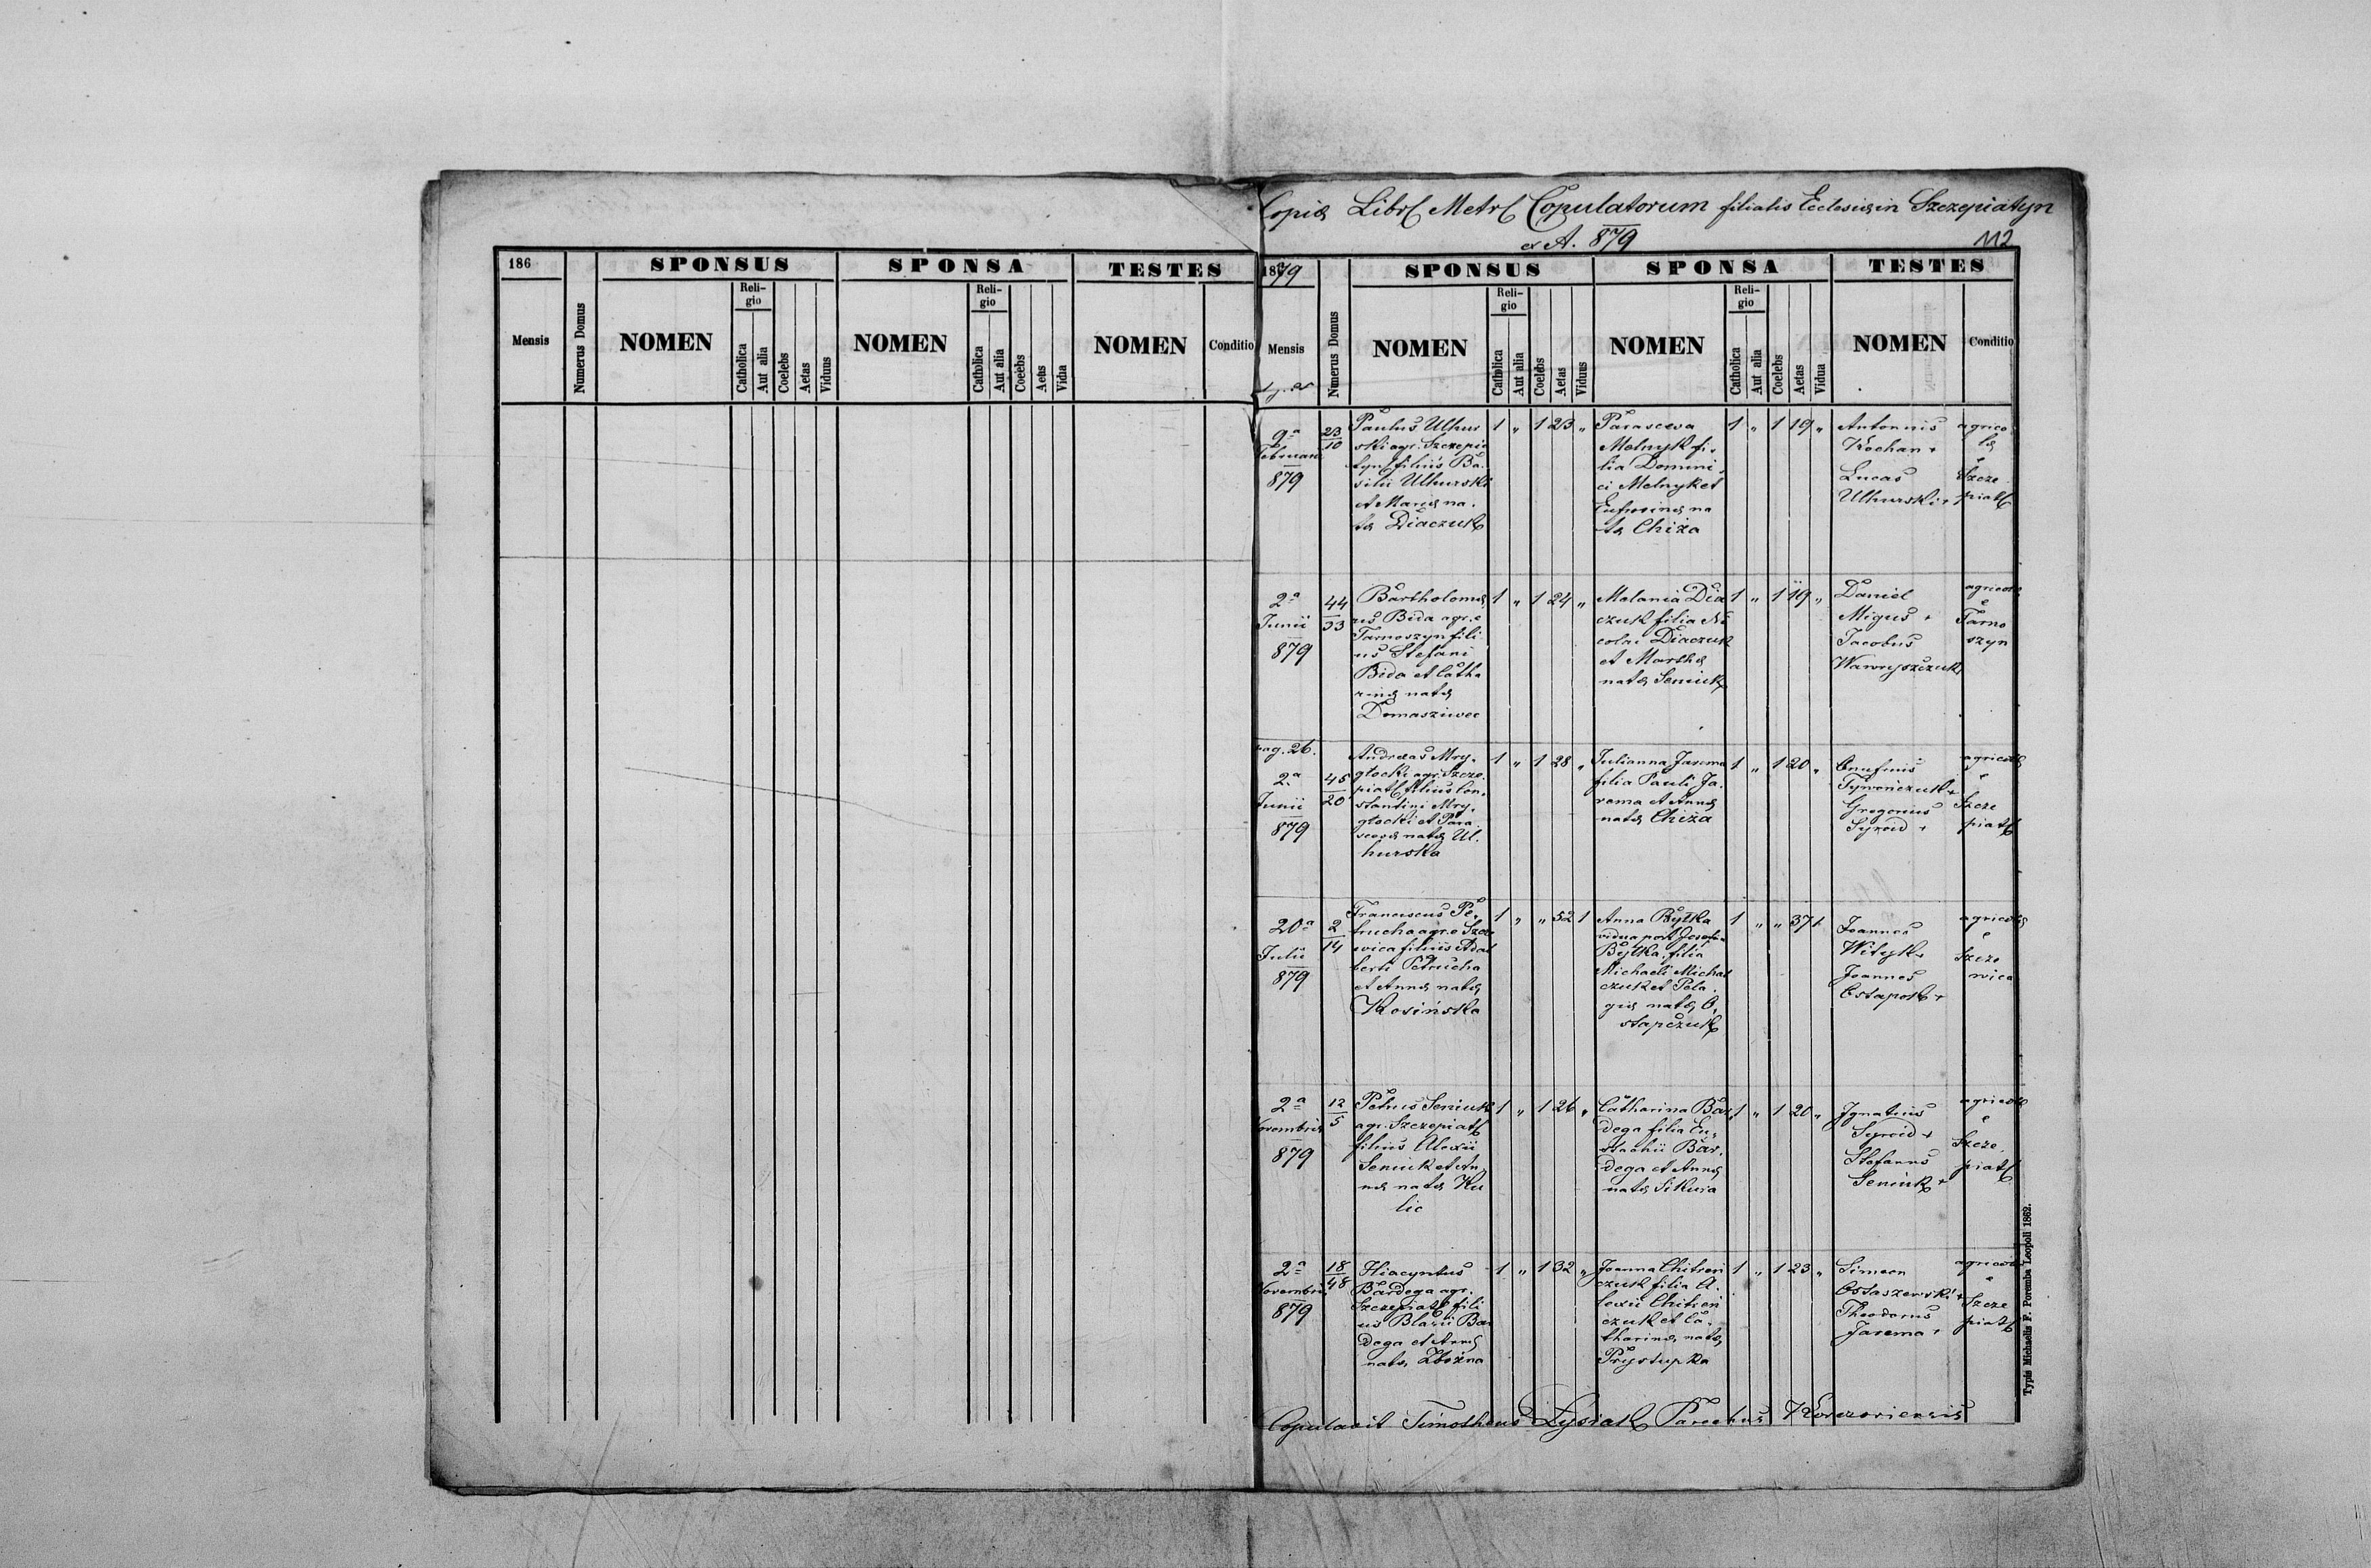 Copia Libri Metri Copulatorum filialis Ecclesiæ in Szczepiatyn
ex A. 879
112
186
SPONSUS
SPONSA
TESTES
Mensis
Numerus Domus
NOMEN
Reli-
gio
Catholica
Aut alia
Coelebs
Aetas
Viduus
NOMEN
Reli-
gio
Catholica
Aut alia
Coelebs
Aetas
Vidua
NOMEN
Conditio
1879
SPONSUS
SPONSA
TESTES
Mensis
Numerus Domus
NOMEN
Reli-
gio
Catholica
Aut alia
Coelebs
Aetas
Viduus
NOMEN
Reli-
gio
Catholica
Aut alia
Coelebs
Aetas
Vidua
NOMEN
Conditio
9a
Februarii
879
23
10
Paulus Uhur
ski agr. Szczepia
tyn filius Ba.
silii Uhurski
et Mariæ na.
tæ Diaczuk
1 „ 1 23 „
Parasceva
Melnyk fi.
lia Domini.
ci Melnyk et
Eufrosinæ na
tæ Chiża
1 „ 1 19 „
Antonius
Kochan +
Lucas
Uhurski +
agrico
læ
Szcze
piat
2a
Junii
879
44
33
Bartholomæ
us Bida agr. e
Tarnoszyn fili
us Stefani
Bida et Catha
rinæ natæ
Domasziwec
1 „ 1 24 „
Melania Dia
czuk filia Ni
colai Diaczuk
et Marthæ
natæ Seniuk
1 „ 1 19 „
Daniel
Migus +
Jacobus
Wawryszczuk
agricolæ
e
Tarno
szyn
pag. 26.
2a
Junii
879
45
20
Andreas Mry.
głocki agr. Szcze.
piat filius Con.
stantini Mry.
głocki et Para
scevæ natæ Ul.
hurska
1 „ 1 28 „
Julianna Jarema
filia Pauli Ja.
rema et Annæ
natæ Chiża
1 „ 1 20 „
Onufrius
Tywończuk +
Gregorius
Syroid +
agricolæ
e
Szcze
piat
20a
Julii
879
2
14
Franciscus Pe.
trucha agr. e Szcze
wica filius Adal
berti Petrucha
et Annæ natæ
Kosińska
1 „ „ 52 1
Anna Bytka
vidua post Josepho
Bytka, filia
Michaeli Michal
czuk et Pela.
giæ natæ O.
stapczuk
1 „ „ 37 1
Joannes
Wityk +
Joannes
Ostapok +
agricolæ
e
Szcze
wica
2a
Novembris
879
12
5
Petrus Seniuk
agr. Szczepiat
filius Alexii
Seniuk et An
næ natæ Ku
lic
1 „ 1 26 „
Catharina Bar.
dega filia Eu.
stachii Bar.
dega et Annæ
natæ Sikura
1 „ 1 20 „
Ignatius
Syroid +
Stefanus
Seniuk +
agricolæ
e
Szcze.
piat
2a
Novembris
879
18
48
Hiacyntus
Bardega agr.
Szczepiat fili
us Blasii Bar
dega et Annæ
natæ Zbożna
1 „ 1 32 „
Joanna Chitren
czuk filia A.
lexii Chitren
czuk et Ca.
tharinæ natæ
Prystupka
1 „ 1 23 „
Simeon
Ostaszewski +
Theodorus
Jarema +
agricolæ
e
Szcze
piat
Copulavit Timotheus Łysiak Parochus Korczoviensis
Typis Michaelis F. Poremba Leopoli 1862.